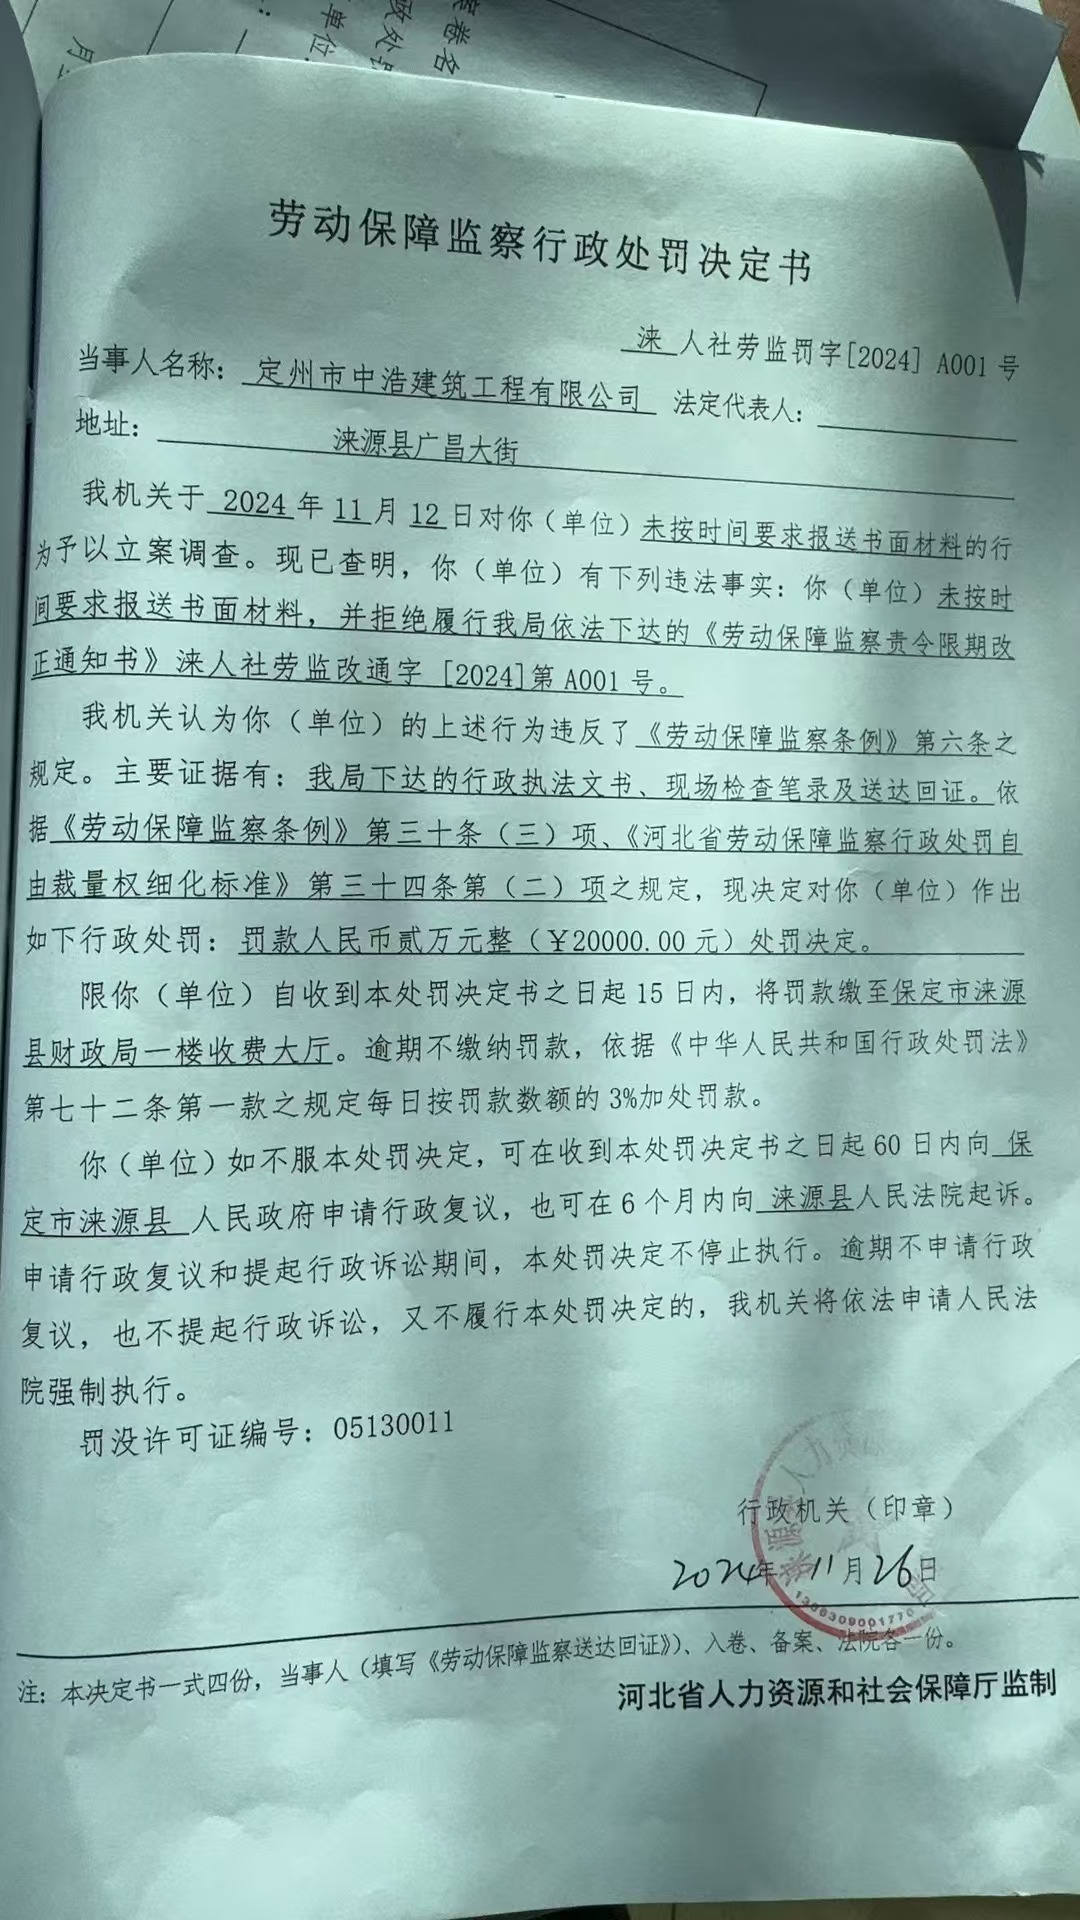 案卷名
政处
单位
月
劳动保障监察行政处罚决定书
涞 人社劳监罚字[2024] A001 号
当事人名称: 定州市中浩建筑工程有限公司 法定代表人:
地址: 涞源县广昌大街
我机关于 2024 年 11 月 12 日对你（单位）未按时间要求报送书面材料的行
为予以立案调查。现已查明，你（单位）有下列违法事实：你（单位）未按时
间要求报送书面材料，并拒绝履行我局依法下达的《劳动保障监察责令限期改
正通知书》涞人社劳监改通字 [2024]第 A001 号。
我机关认为你（单位）的上述行为违反了《劳动保障监察条例》第六条之
规定。主要证据有：我局下达的行政执法文书、现场检查笔录及送达回证。依
据《劳动保障监察条例》第三十条（三）项、《河北省劳动保障监察行政处罚自
由裁量权细化标准》第三十四条第（二）项之规定，现决定对你（单位）作出
如下行政处罚：罚款人民币贰万元整（¥20000.00 元）处罚决定。
限你（单位）自收到本处罚决定书之日起 15 日内，将罚款缴至保定市涞源
县财政局一楼收费大厅。逾期不缴纳罚款，依据《中华人民共和国行政处罚法》
第七十二条第一款之规定每日按罚款数额的 3%加处罚款。
你（单位）如不服本处罚决定，可在收到本处罚决定书之日起 60 日内向 保
定市涞源县 人民政府申请行政复议，也可在 6 个月内向 涞源县人民法院起诉。
申请行政复议和提起行政诉讼期间，本处罚决定不停止执行。逾期不申请行政
复议，也不提起行政诉讼，又不履行本处罚决定的，我机关将依法申请人民法
院强制执行。
罚没许可证编号：05130011
行政机关（印章）
2024年 11月26日
注：本决定书一式四份，当事人（填写《劳动保障监察送达回证》）、入卷、备案、法院各一份。
河北省人力资源和社会保障厅监制